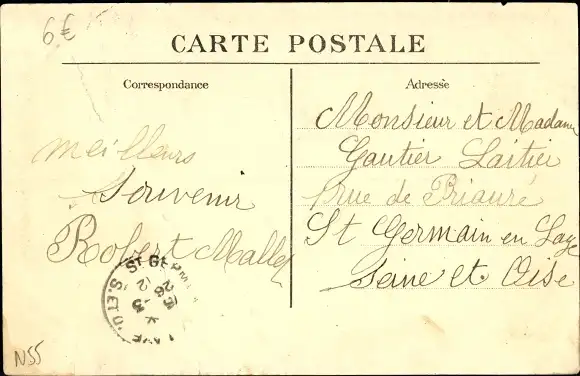 6€
CARTE POSTALE
Correspondance
meilleurs
Souvenir
Robert Mallet
Adresse
Monsieur et Madame
Gautier Laitier
rue de Priauré
St Germain en Laye
Seine et Oise
ST GERM
LAYE
S.ET O.
N55